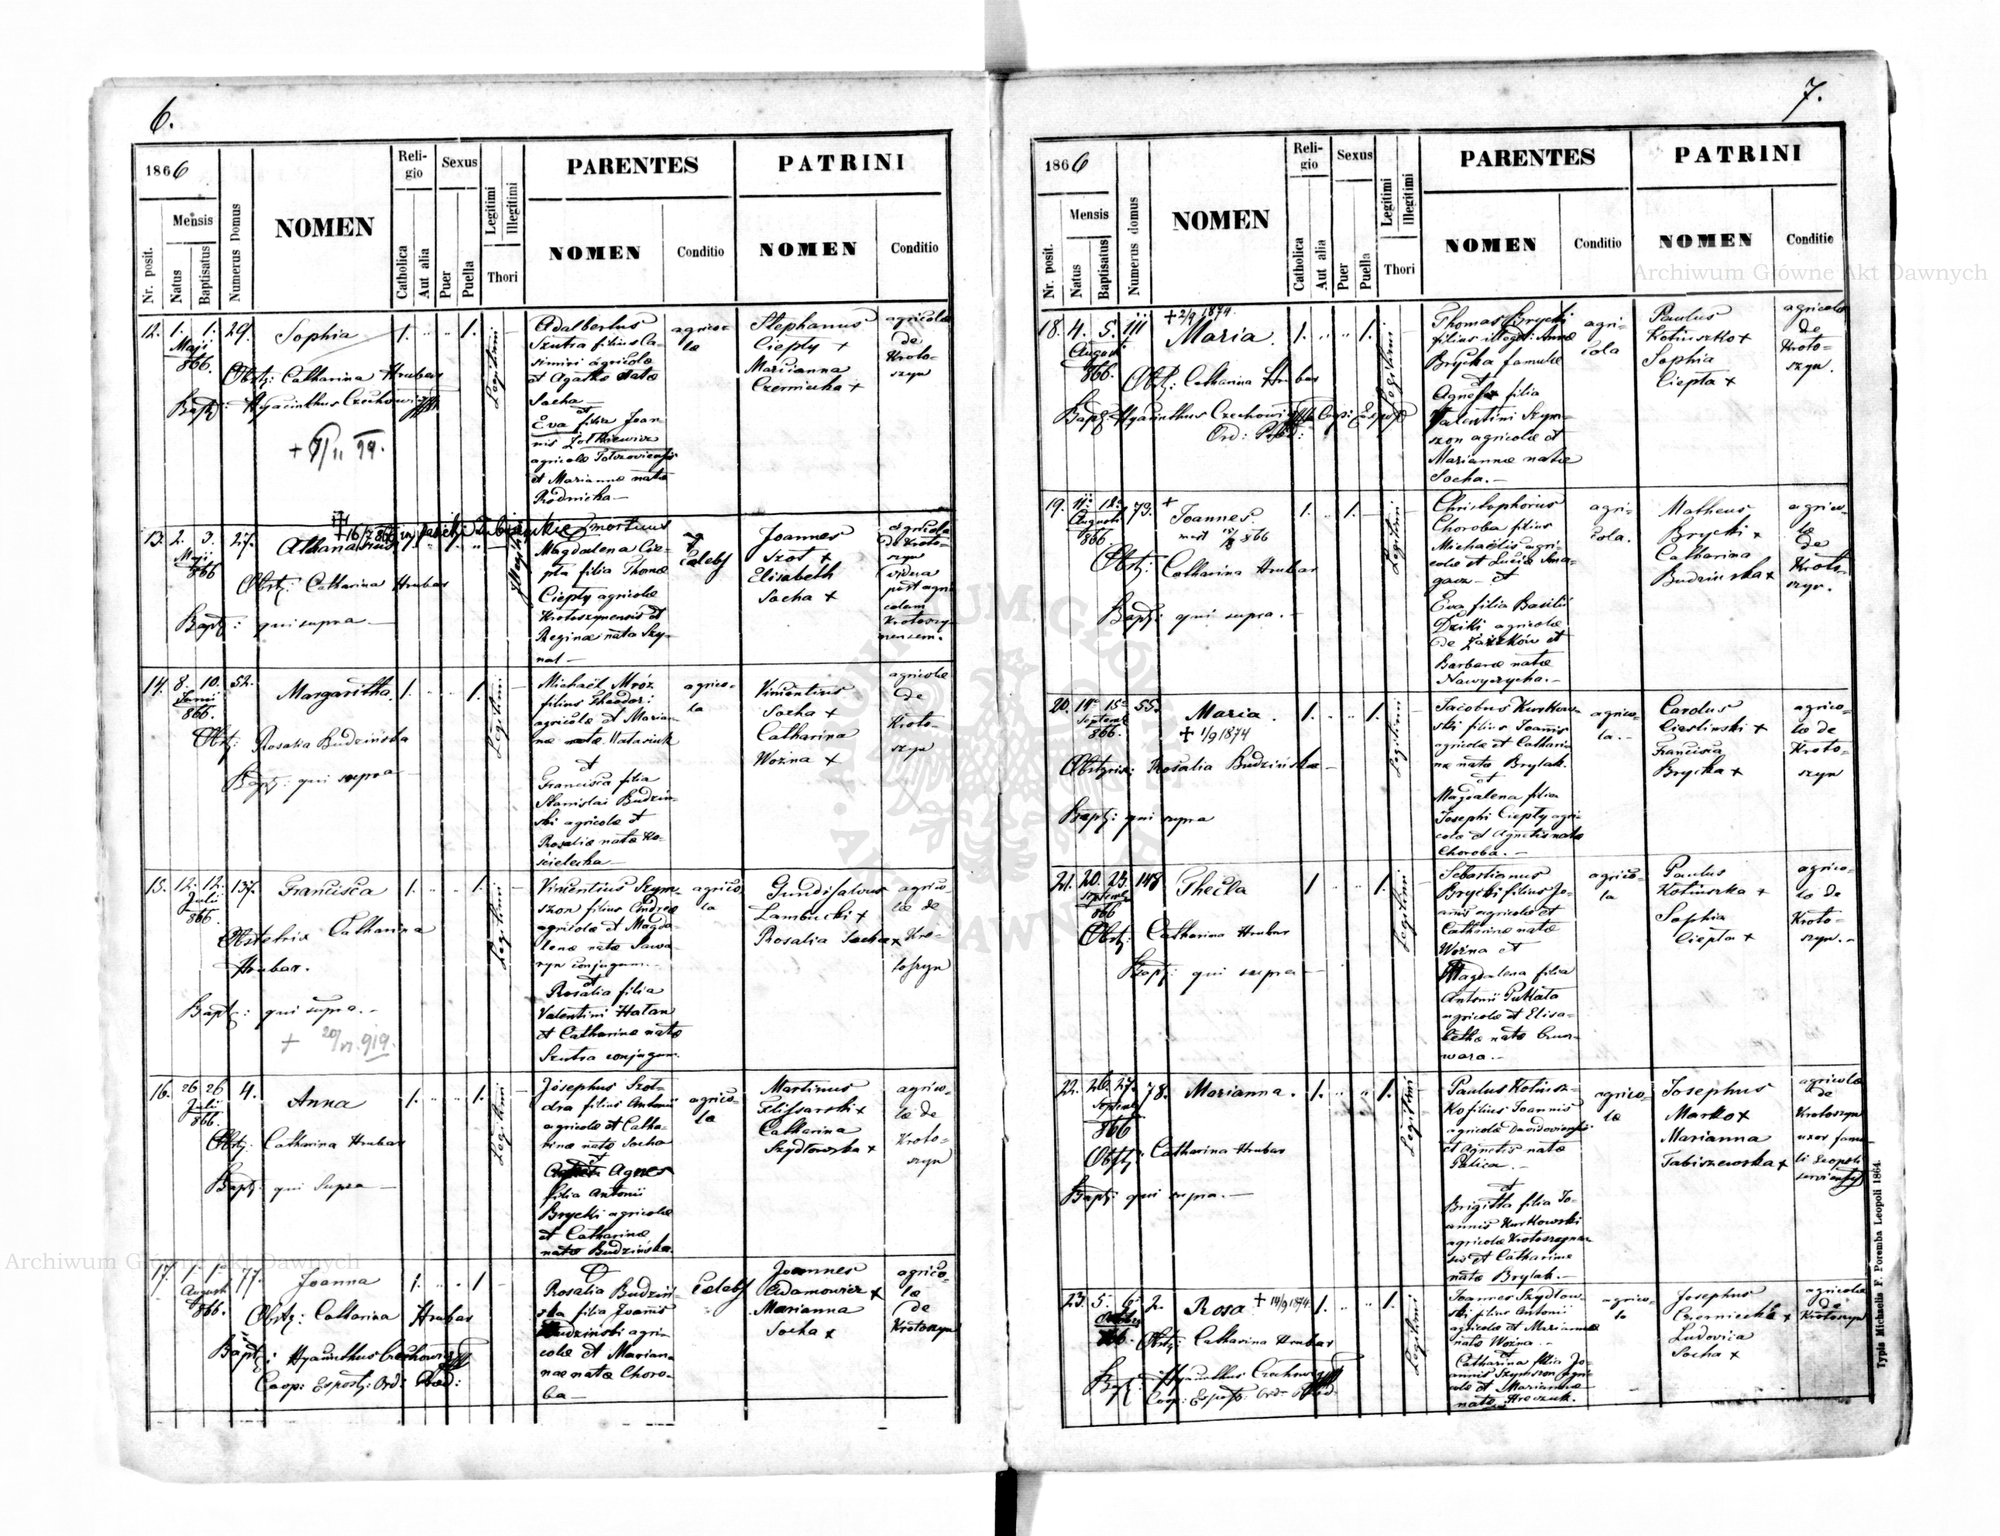 6.
1866
Nr. posit.
Mensis
Natus
Baptisatus
Numerus Domus
NOMEN
Religio
Catholica
Aut alia
Sexus
Puer
Puella
Legitimi
Illegitimi
Thori
PARENTES
NOMEN
Conditio
PATRINI
NOMEN
Conditio
12. 1. 1. 29. Sophia 1. 1.
Maji
866.
Obstj: Catharina Hrubar
Bapt: Hyacinthus Czechowicz
Legitimi
Adalbertus
Szutra filius Ca-
simiri agricolæ
et Agathæ natæ
Socha
et
Eva filia Joan-
nis Zolkiewicz
agricolæ
et Mariannæ natæ
Rodnicka —
agrico-
læ
Stephanus
Ciepły +
Marianna
Czerniecka +
agricolæ
de
Kroto-
szyn
13. 2. 3. 27. Athanasius
Maji
866
Obstj: Catharina Hrubar
Bapt: qui supra. —
mortuus
Magdalena Cie-
pła filia Thomæ
Ciepły agricolæ
Krotoszynensis et
Reginæ nata Szy-
nal —
Cælebs
Joannes
Szot +
Elisabeth
Socha +
agricola
de Kroto-
szyn
vidua
post agri
colam
Krotoszy-
nensem.
14. 8. 10. 52. Margaritha 1. 1.
Junii
866.
Obstj: Rosalia Budzińska
Bapt: qui supra —
Legitimi
Michaël Mróz
filius Theodori
agricolæ et Marian-
næ natæ Matasiuk
et
Francisca filia
Stanislai Budziń-
ski agricolæ et
Rosaliæ natæ Ko-
ścielecka —
agrico-
la
Vincentius
Socha +
Catharina
Woźna +
agricolæ
de
Kroto-
szyn
15. 12. 12. 137. Francisca 1. 1.
Julii
866.
Obstetrix Catharina
Hrubar.
Bapt: qui supra. —
+ 20/VI. 919.
Legitimi
Vincentius Szym-
szon filius Andreæ
agricolæ et Magda
lenæ natæ Sawa-
ryn conjugum. —
et
Rosalia filia
Valentini Hałan
et Catharinæ natæ
Szutra conjugum.
agrico
la
Gundisalvus
Lambucki +
Rosalia Socha +
agrico-
læ de
Kro-
toszyn
16. 26 26 4. Anna 1. 1.
Julii
866.
Obstj: Catharina Hrubar
Bapt: qui supra —
Legitimi
Josephus Szot-
dra filius Antonii
agricolæ et Catha-
rinæ natæ Socha
et
Agnes
filia Antonii
Brycki agricolæ
et Catharinæ
natæ Budzińska.
agrico-
la
Martinus
Szlifsarski +
Catharina
Szydłowska +
agrico-
læ de
Kroto-
szyn
17. 1. 1. 77. Joanna 1. 1
Augusti
866.
Obstj: Catharina Hrubar
Bapt: Hyacinthus Czechowicz
Coop: Expost: Ord: Præd:
Rosalia Budziń-
ska filia Joannis
Budziński agri-
colæ et Marian-
næ natæ Choro-
ba —
Cælebs
Joannes
Adamowicz +
Marianna
Socha +
agrico-
læ
de
Krotoszyn
7.
1866
Nr. posit.
Mensis
Natus
Baptisatus
Numerus domus
NOMEN
Religio
Catholica
Aut alia
Sexus
Puer
Puella
Legitimi
Illegitimi
Thori
PARENTES
NOMEN
Conditio
PATRINI
NOMEN
Conditio
+ 2/9 1874.
18. 4. 5. 111 Maria 1. 1.
Augusti
866.
Obstj: Catharina Hrubar
Bapt: Hyacinthus Czechowicz
Ord: Præd:
Legitimi
Thomas Brycki
filius illegit: Annæ
Brycka famulæ
et
Agnes filia
Valentini Szym-
szon agricolæ et
Mariannæ natæ
Socha. —
agri-
cola
Paulus
Kotiuszko +
Sophia
Ciepła +
agricolæ
de
Kroto-
szyn.
19. 11. 12. 79. Joannes. 1. 1.
Augusti
866
Obstj: Catharina Hrubar
Bapt: qui supra. —
Legitimi
Christophorus
Choroba filius
Michaëlis agri-
colæ et Luciæ Sma-
gacz — et
Eva filia Basilii
Dziki agricolæ
de Żaszków et
Barbaræ natæ
Nawyzycha. —
agri-
cola.
Matheus
Brycki +
Catharina
Budzińska +
agrico-
læ
de
Kroto-
szyn.
20. 14. 15. 55. Maria. 1. 1.
Septemb
866.
+ 1/9 1874
Obstetrix: Rosalia Budzińska —
Bapt: qui supra
Legitimi
Jacobus Kurkow-
ski filius Joannis
agricolæ et Cathari-
næ natæ Brylak.
et
Magdalena filia
Josephi Ciepły agri-
colæ et Agnetis natæ
Choroba. —
agrico-
la. —
Carolus
Cieslinski +
Francisca
Brycka +
agrico-
læ de
Kroto-
szyn
21. 20. 23. 148 Thecla 1 1.
Septemb
866
Obstj: Catharina Hrubar
Bapt: qui supra —
Legitimi
Sebastianus
Brycki filius Jo-
annis agricolæ et
Catharinæ natæ
Woźna et
Magdalena filia
Antonii Pukała
agricolæ et Elisa-
bethæ natæ
agrico-
la
Paulus
Kotiuszka +
Sophia
Ciepła +
agrico-
læ de
Kroto-
szyn. —
22. 26. 27. 78. Marianna. 1. 1.
Septemb
866
Obstj: Catharina Hrubar
Bapt: qui supra. —
Legitimi
Paulus Kotiusz-
ko filius Joannis
agricolæ Davidoviensis
et Agnetis natæ
Palica. —
et
Brigitta filia Jo-
annis Kurkowski
agricolæ Krotoszynen
sis et Catharinæ
natæ Brylak. —
agrico-
læ
Josephus
Marko +
Marianna
Tabiszewska +
agricola
de
Krotoszyn
uxor famu-
li Leopoli
servientis
23. 5. 6. 2. Rosa + 14/9 1874. 1. 1.
Octobris
866.
Obstj: Catharina Hrubar
Bapt: Hyacinthus Czechowicz
Coop: Expost: Ord: Præd:
Legitimi
Joannes Szydłow-
ski filius Antonii
agricolæ et Mariannæ
natæ Woźna
et
Catharina filia Jo-
annis Szymszon agri-
colæ et Mariannæ
natæ Hreczuk.
agrico-
la
Josephus
Czerniecki +
Ludovica
Socha +
agricolæ
de
Krotoszyn
Typis Michaelis F. Poremba Leopoli 1864.
Archiwum Główne Akt Dawnych
Archiwum Główne Akt Dawnych
ARCHIWUM GŁÓWNE AKT DAWNYCH